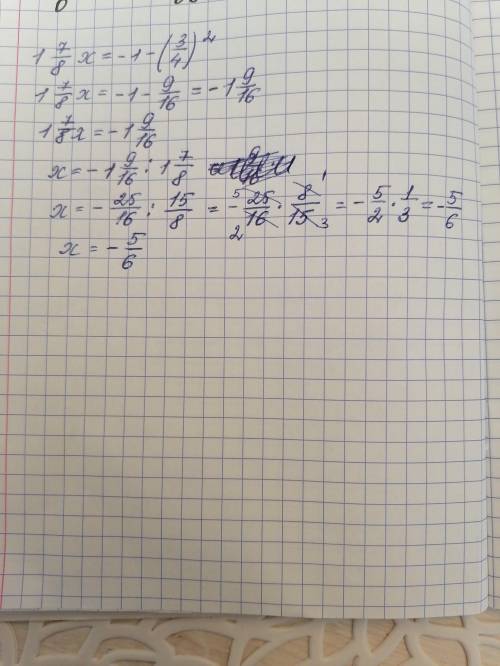 1 7/8 x = -1 - (3/4)²
1 7/8 x = -1 - 9/16 = -1 9/16
1 7/8 x = -1 9/16
x = -1 9/16 : 1 7/8
x = - 25/16 : 15/8 = - 25/16 · 8/15 = - 5/2 · 1/3 = - 5/6
x = - 5/6